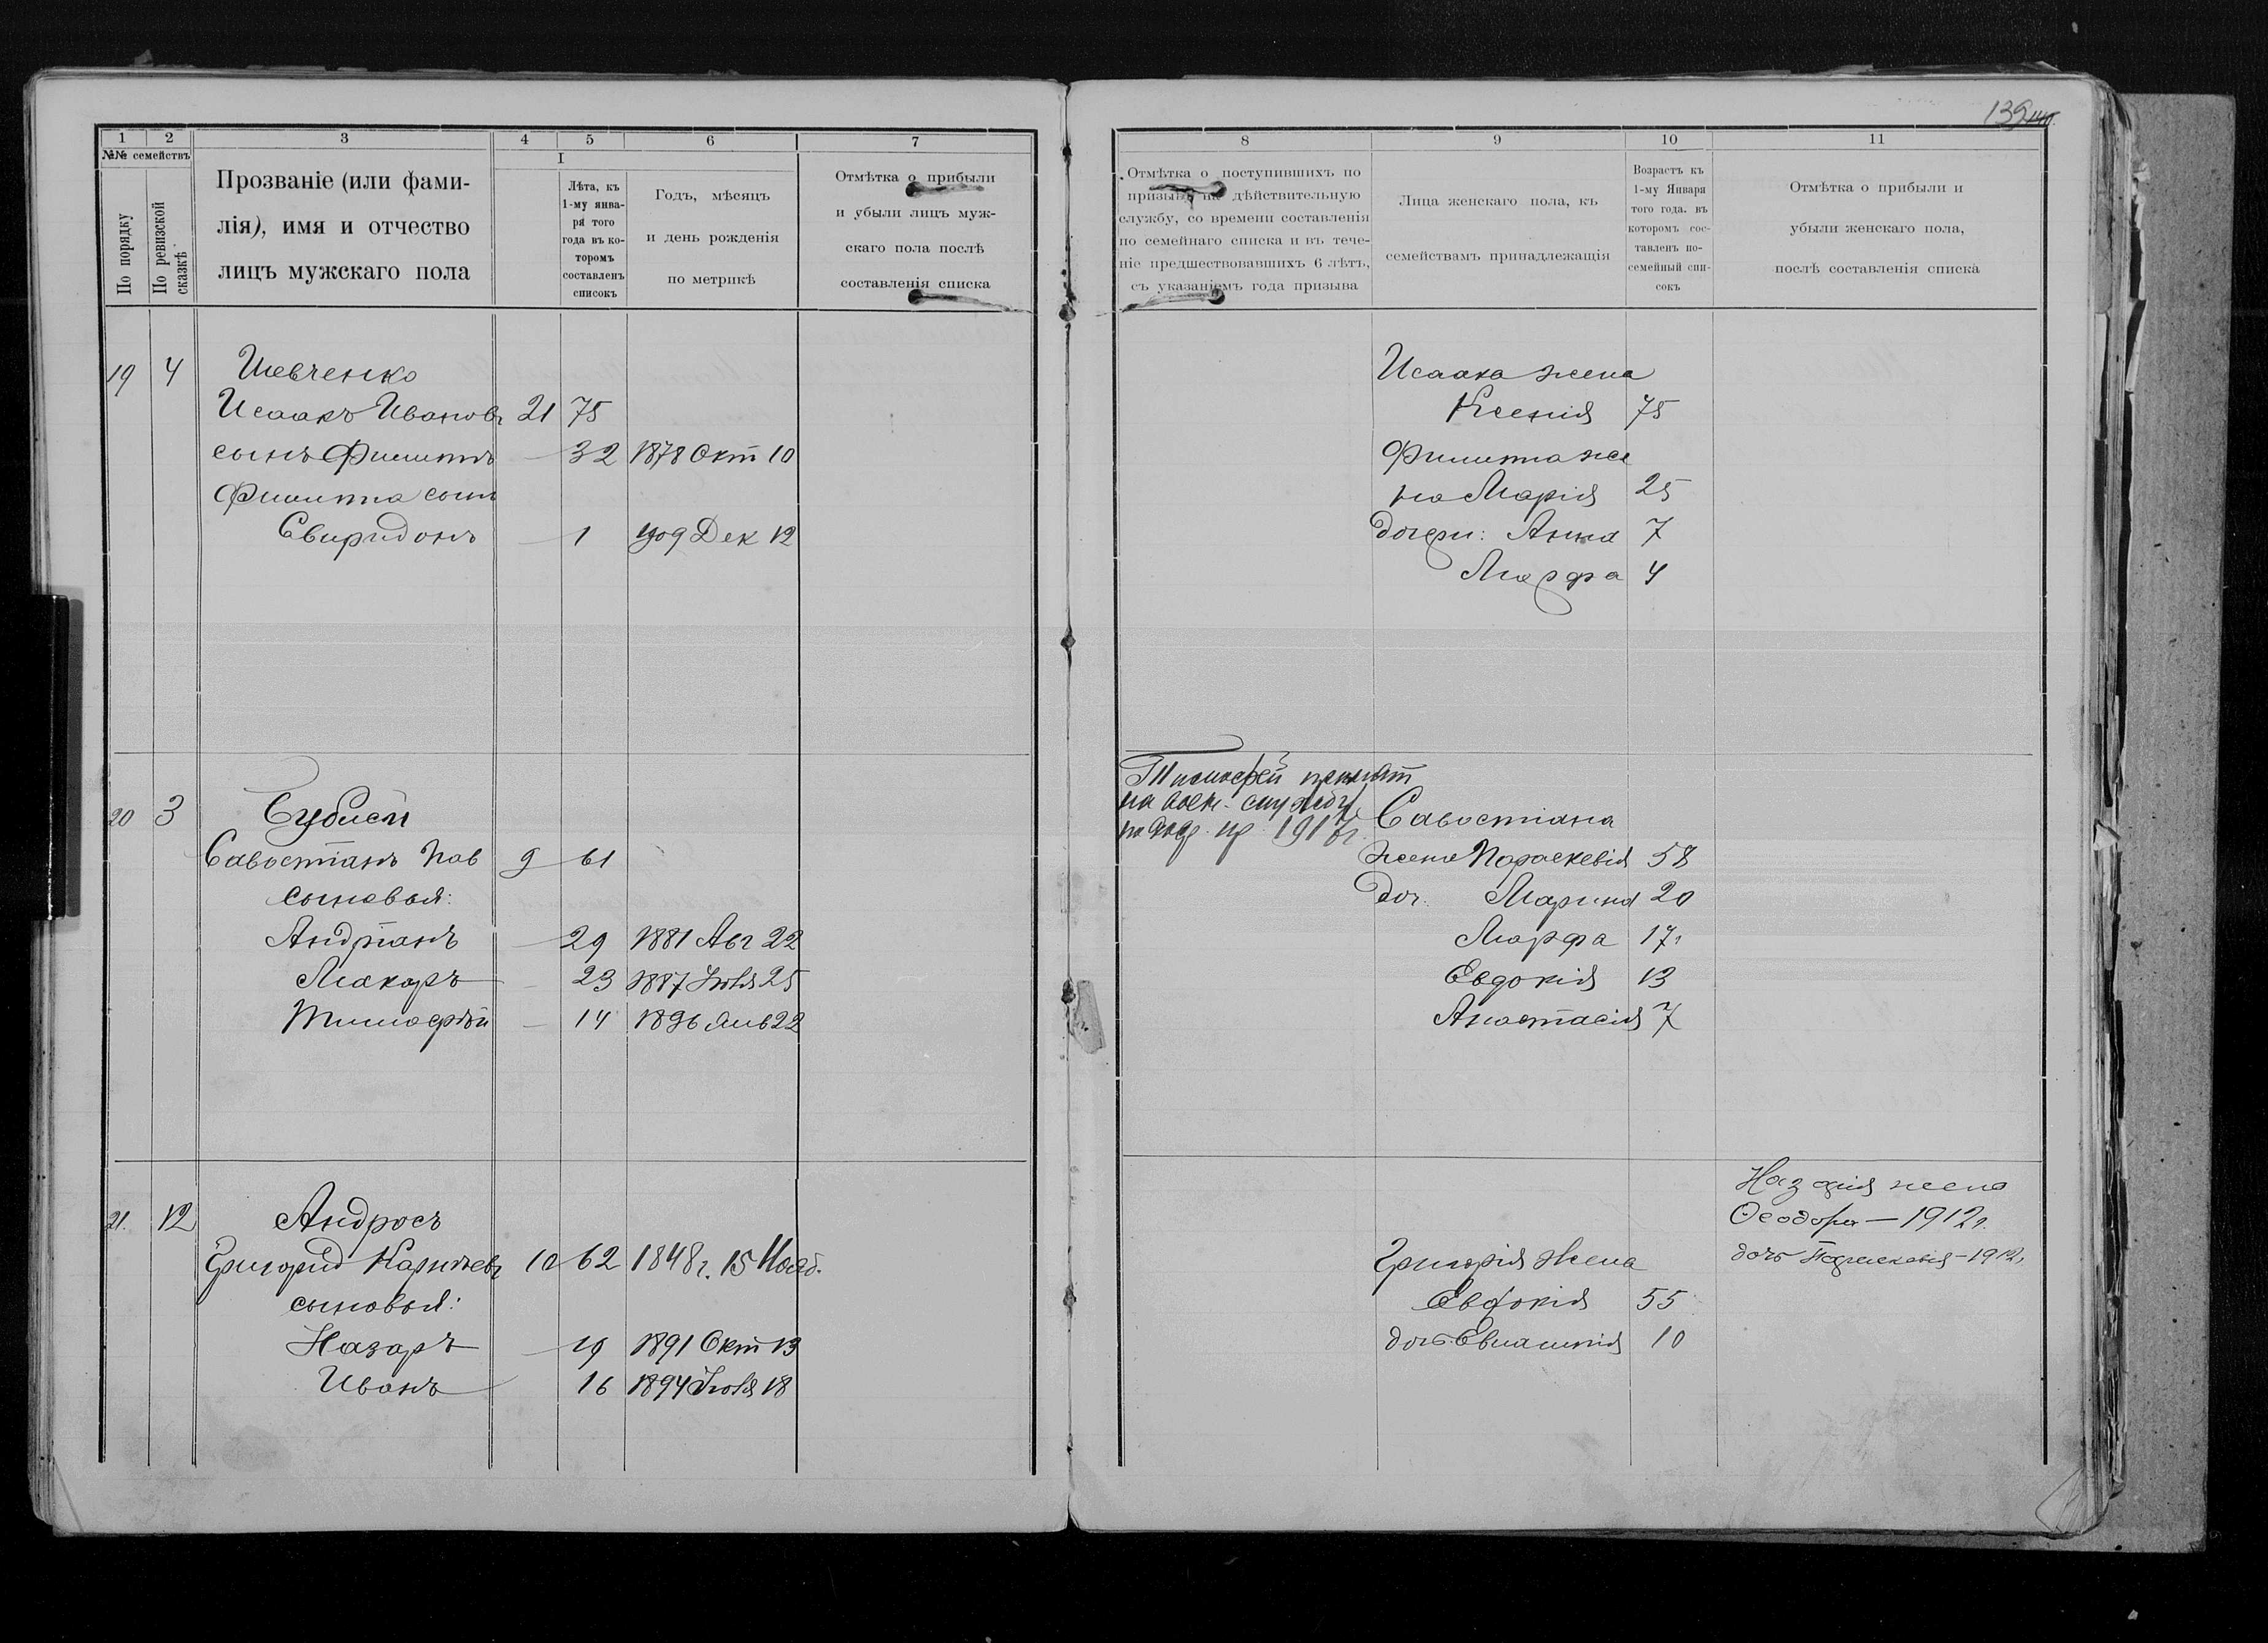 139 140.
1 2 3 4 5 6 7
№№ семействъ
По порядку
По ревизской сказкѣ
Прозваніе (или фами-
лія), имя и отчество
лицъ мужскаго пола
I
Лѣта, къ
1-му янва-
ря того
года въ ко-
торомъ
составленъ
списокъ
Годъ, мѣсяцъ
и день рожденія
по метрикѣ
Отмѣтка о прибыли
и убыли лицъ муж-
скаго пола послѣ
составленія списка
19 4 Шевченко
Исаакъ Иванов 21 75
сынъ Филиппъ — 32 1878 Окт 10
Филиппа сынъ
Свиридонъ — 1 1909 Дек 12
20 3
Савостіанъ Пав 9 61
сыновья:
Андріанъ — 29 1881 Авг 22
Макаръ — 23 1887 Іюля 25
Тимофѣй — 14 1896 Янв 22
21. 12 Андросъ
Григорій 10 62 1848 г. 15 Нояб.
сыновья:
Назаръ — 19 1891 Окт 13
Иванъ — 16 1894 Іюля 18
8 9 10 11
Отмѣтка о поступившихъ по
призыву на дѣйствительную
службу, со времени составленія
по семейнаго списка и въ тече-
ніе предшествовавшихъ 6 лѣтъ,
съ указаніемъ года призыва
Лица женскаго пола, къ
семействамъ принадлежащія
Возрастъ къ
1-му Января
того года. въ
которомъ сос-
тавленъ по-
семейный спи-
сокъ
Отмѣтка о прибыли и
убыли женскаго пола,
послѣ составленія списка
Исаака жена
Ксенія 75
Филиппа же
на Марія 25
дочери: Анна 7
Марфа 4
Тимофей принят
на воен. службу
пр. 1917 г.
Савостіана
жена Параскевія 58
доч. Марина 20
Марфа 17
Евдокія 13
Анастасія 7
Григорія жена
Евдокія 55
дочь 10
Назарія жена
Ѳеодора — 1912 г.
дочь Параскевія — 1912